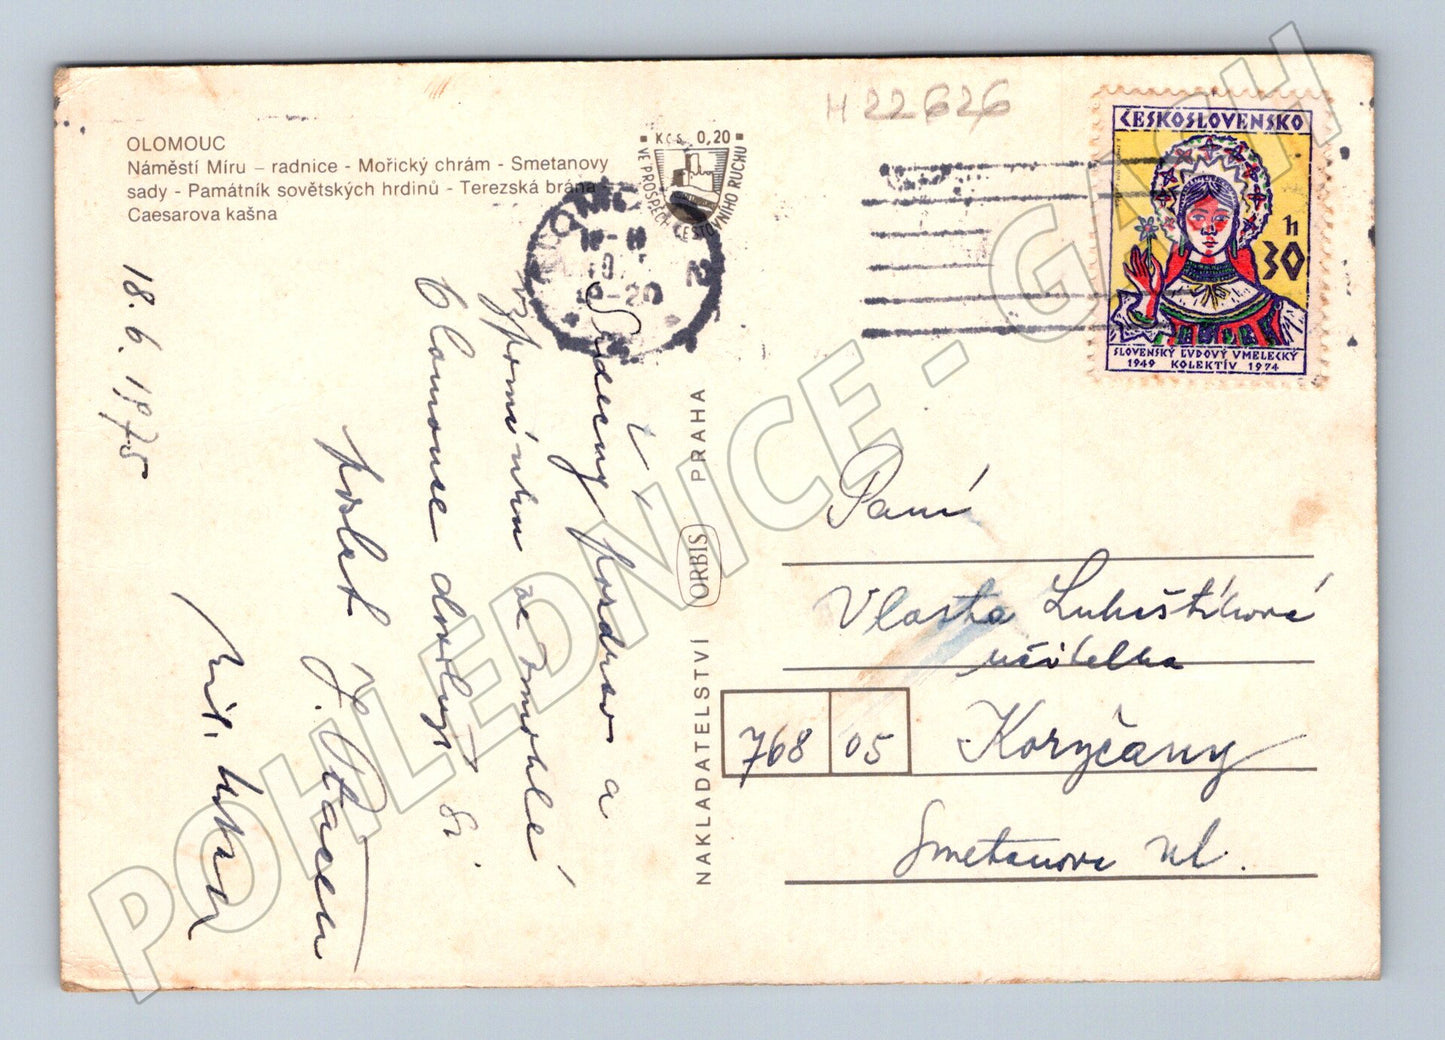 OLOMOUC
Náměstí Míru – radnice - Mořický chrám - Smetanovy
sady - Památník sovětských hrdinů - Terezská brána
Caesarova kašna
H 22626
Kčs 0,20
VE PROSPĚCH CESTOVNÍHO RUCHU
2
ČESKOSLOVENSKO
30 h
SLOVENSKÝ ĽUDOVÝ UMELECKÝ
1949 KOLEKTÍV 1974
18. 6. 1975
Srdečný pozdrav a
vzpomínku ze
Olomouce dovoluji si
poslat
NAKLADATELSTVÍ ORBIS PRAHA
Paní
Vlasta
učitelka
768 05 Koryčany
Smetanova ul.
POHLEDNICE - GASH